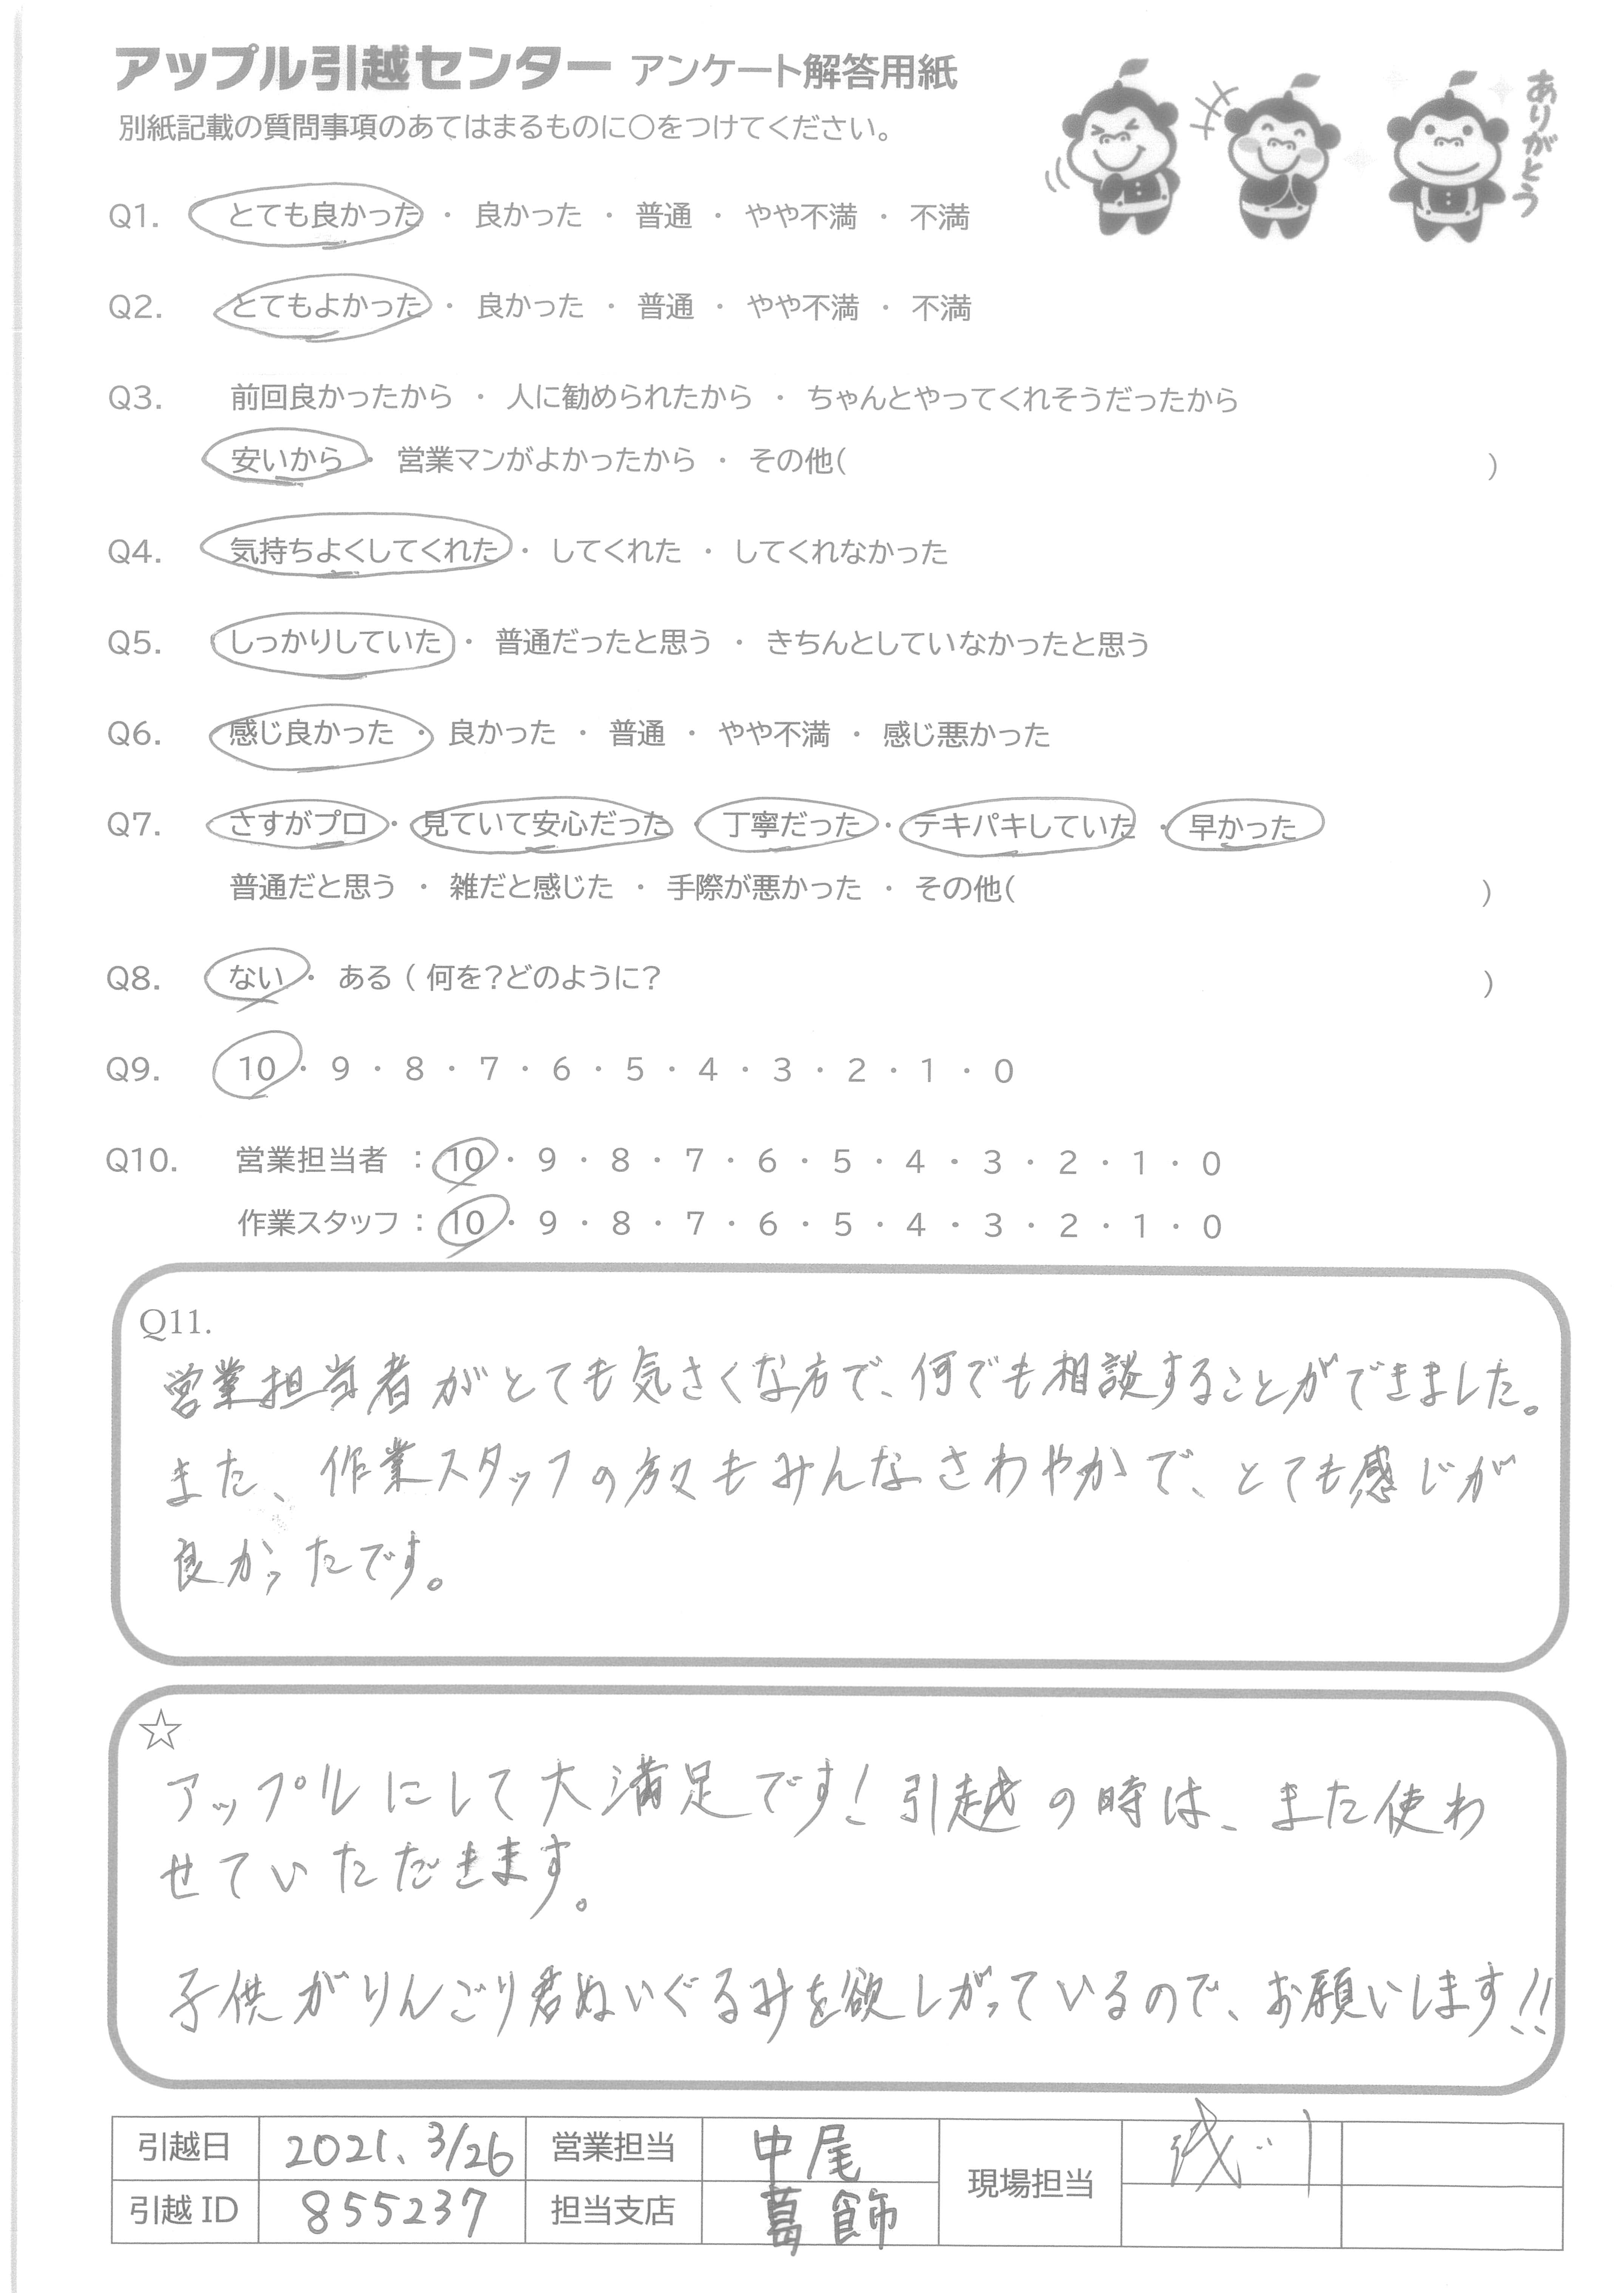 アップル引越センター アンケート解答用紙
別紙記載の質問事項のあてはまるものに○をつけてください。
ありがとう
Q1. とても良かった ・ 良かった ・ 普通 ・ やや不満 ・ 不満
Q2. とてもよかった ・ 良かった ・ 普通 ・ やや不満 ・ 不満
Q3. 前回良かったから ・ 人に勧められたから ・ ちゃんとやってくれそうだったから
安いから ・ 営業マンがよかったから ・ その他( )
Q4. 気持ちよくしてくれた ・ してくれた ・ してくれなかった
Q5. しっかりしていた ・ 普通だったと思う ・ きちんとしていなかったと思う
Q6. 感じ良かった ・ 良かった ・ 普通 ・ やや不満 ・ 感じ悪かった
Q7. さすがプロ ・ 見ていて安心だった ・ 丁寧だった ・ テキパキしていた ・ 早かった
普通だと思う ・ 雑だと感じた ・ 手際が悪かった ・ その他( )
Q8. ない ・ ある ( 何を?どのように? )
Q9. 10 ・ 9 ・ 8 ・ 7 ・ 6 ・ 5 ・ 4 ・ 3 ・ 2 ・ 1 ・ 0
Q10. 営業担当者 : 10 ・ 9 ・ 8 ・ 7 ・ 6 ・ 5 ・ 4 ・ 3 ・ 2 ・ 1 ・ 0
作業スタッフ : 10 ・ 9 ・ 8 ・ 7 ・ 6 ・ 5 ・ 4 ・ 3 ・ 2 ・ 1 ・ 0
Q11.
営業担当者がとても気さくな方で、何でも相談することができました。
また、作業スタッフの方々もみんなさわやかで、とても感じが
良かったです。
☆
アップルにして大満足です!引越の時は、また使わ
せていただきます。
子供がりんごり君ぬいぐるみを欲しがっているので、お願いします!!
引越日 2021.3/26 営業担当 中尾 現場担当
引越ID 855237 担当支店 葛飾